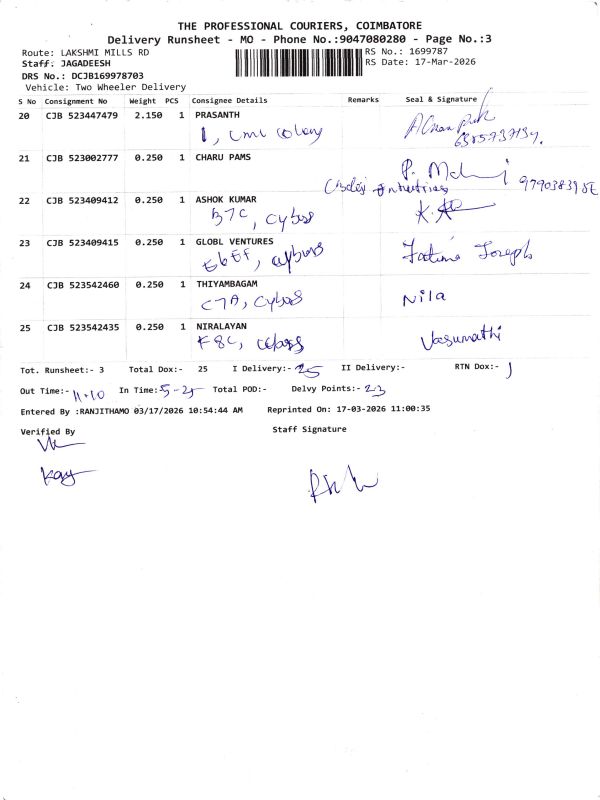 THE PROFESSIONAL COURIERS, COIMBATORE
Delivery Runsheet - MO - Phone No.:9047080280 - Page No.:3
Route: LAKSHMI MILLS RD RS No.: 1699787
Staff: JAGADEESH RS Date: 17-Mar-2026
DRS No.: DCJB169978703
Vehicle: Two Wheeler Delivery
S No Consignment No Weight PCS Consignee Details Remarks Seal & Signature
20 CJB 523447479 2.150 1 PRASANTH
1, CMC Colony
21 CJB 523002777 0.250 1 CHARU PAMS
22 CJB 523409412 0.250 1 ASHOK KUMAR
B7C,
23 CJB 523409415 0.250 1 GLOBL VENTURES Fatima Joseph
24 CJB 523542460 0.250 1 THIYAMBAGAM
C7A, Nila
25 CJB 523542435 0.250 1 NIRALAYAN Vasumathi
F8C,
Tot. Runsheet:- 3 Total Dox:- 25 I Delivery:- 25 II Delivery:- RTN Dox:- 1
Out Time:- 11-10 In Time:- 5-25 Total POD:- Delvy Points:- 23
Entered By :RANJITHAMO 03/17/2026 10:54:44 AM Reprinted On: 17-03-2026 11:00:35
Verified By Staff Signature